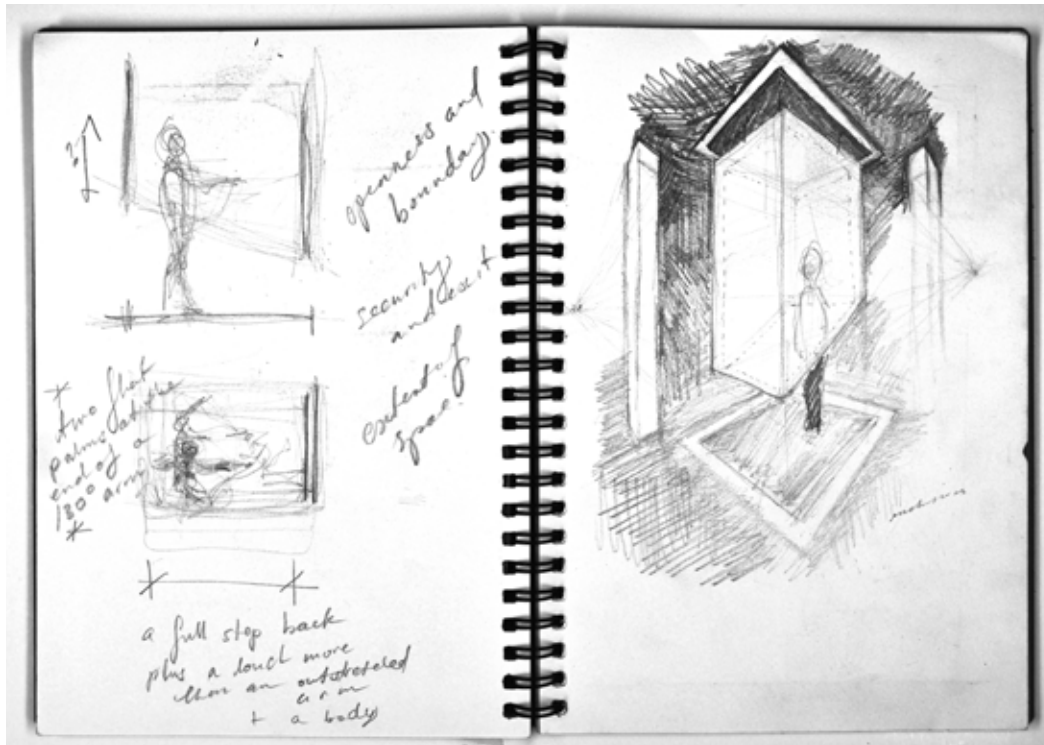 ?
openness and
bounday.
security
and
extent of
space.
*
two flat
palms at the
end of a
180° arm
*
a full stop back
plus a touch more
than an outstretched
arm
+ a body